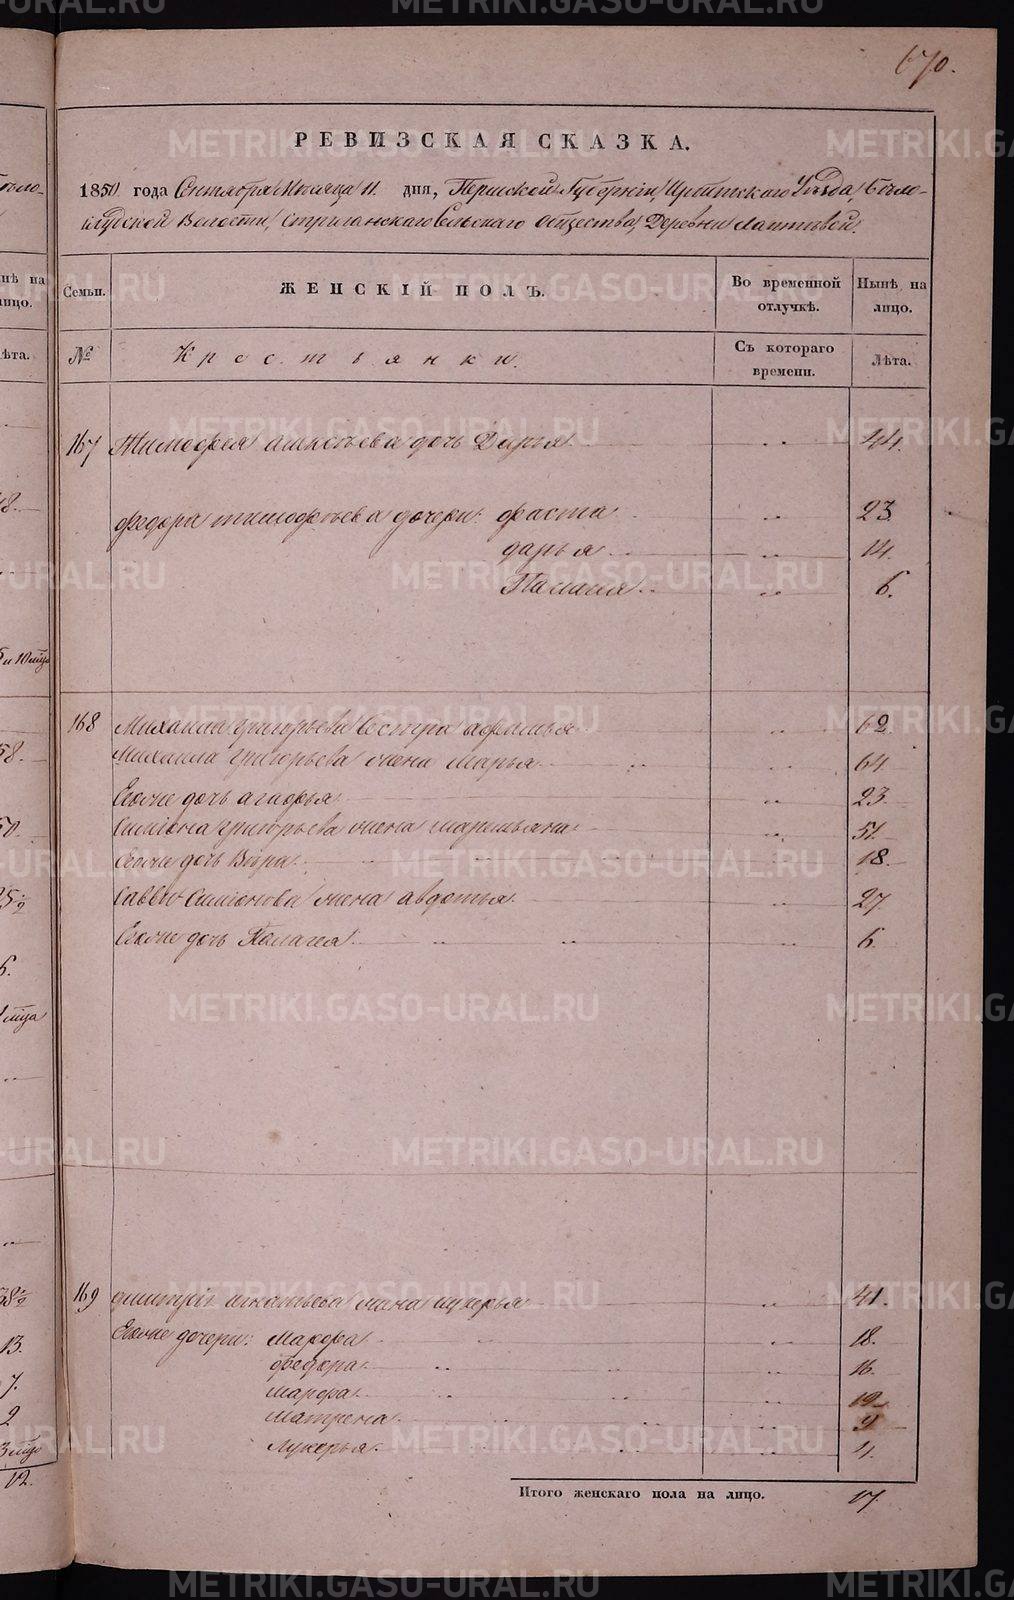 670.
РЕВИЗСКАЯ СКАЗКА.
1850 года Сентября Месяца 11. дня, Пермской Губерніи, Ирбитскаго Уѣзда, Бѣло-
слудской Волости, Стриганскаго Сельскаго Общества, Деревни Лаптевой.
Семьи. ЖЕНСКІЙ ПОЛЪ. Во временной отлучкѣ. Нынѣ на лицо.
№ Крестьянки. Съ котораго времени. Лѣта.
167 Тимофея алексѣева дочь Дарья 44.
федора тимофѣева дочери: фаста 23.
дарья 14.
Палагея 6.
168 Михаила григорьева сестра афимья 62.
Михаила григорьева жена марья 64.
Егоже дочь агафья 23.
Симіона григорьева жена маремьяна 51.
Егоже дочь Вѣра 18.
Саввы Симіонова жена авдотья 27.
Егоже дочь Палагея 6.
169 дмитрія игнатьева жена лукерья 41.
Егоже дочери: Марфа 18.
федора 16.
марфа 12.
матрена 9
Лукерья 4.
Итого женскаго пола на лицо. 17.
METRIKI.GASO-URAL.RU